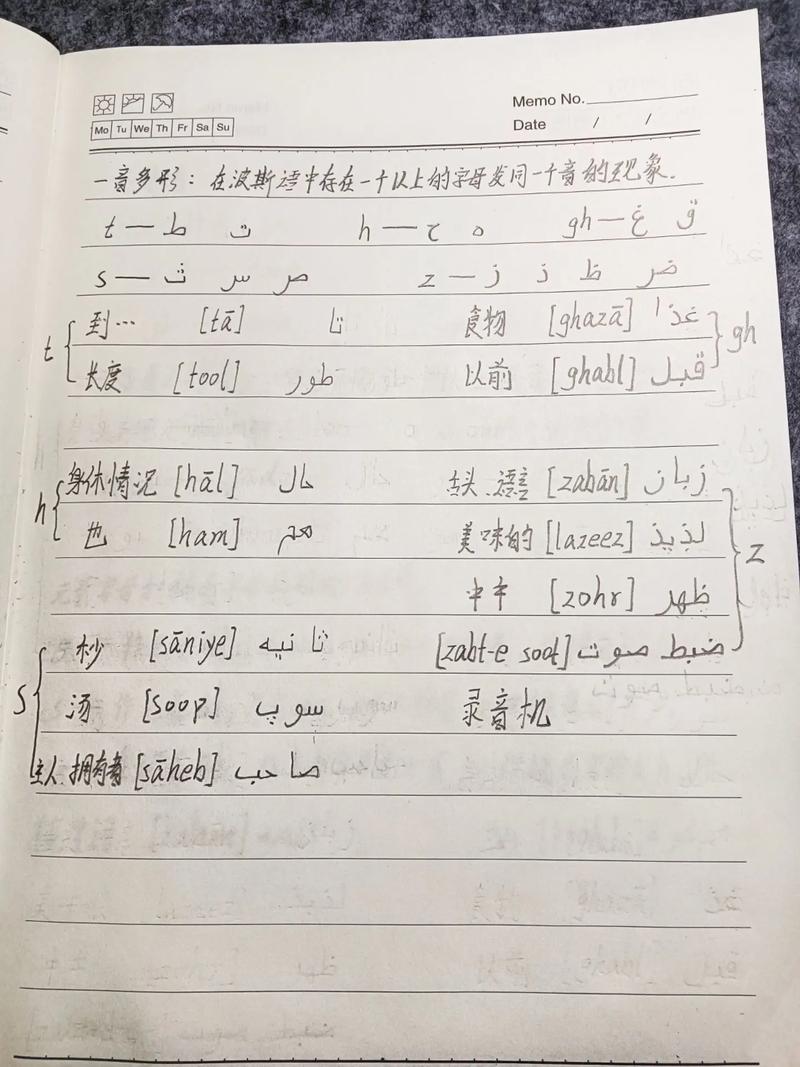 Memo No.
Mo Tu We Th Fr Sa Su
Date / /
一音多形：在波斯语中存在一个以上的字母发同一个音的现象.
t — ط ت h — ح ه gh — غ ق
s — ث س ص z — ز ذ ظ ض
t 到… [tā] تا 食物 [ghazā] غذا gh
长度 [tool] طور 以前 [ghabl] قبل
h 身体情况 [hāl] حال 舌头、语言 [zabān] زبان z
也 [ham] هم 美味的 [lazeez] لذیذ
中午 [zohr] ظهر
s 秒 [sāniye] ثانیه [zabt-e soot] ضبط صوت
汤 [soop] سوپ 录音机
主人 拥有者 [sāheb] صاحب